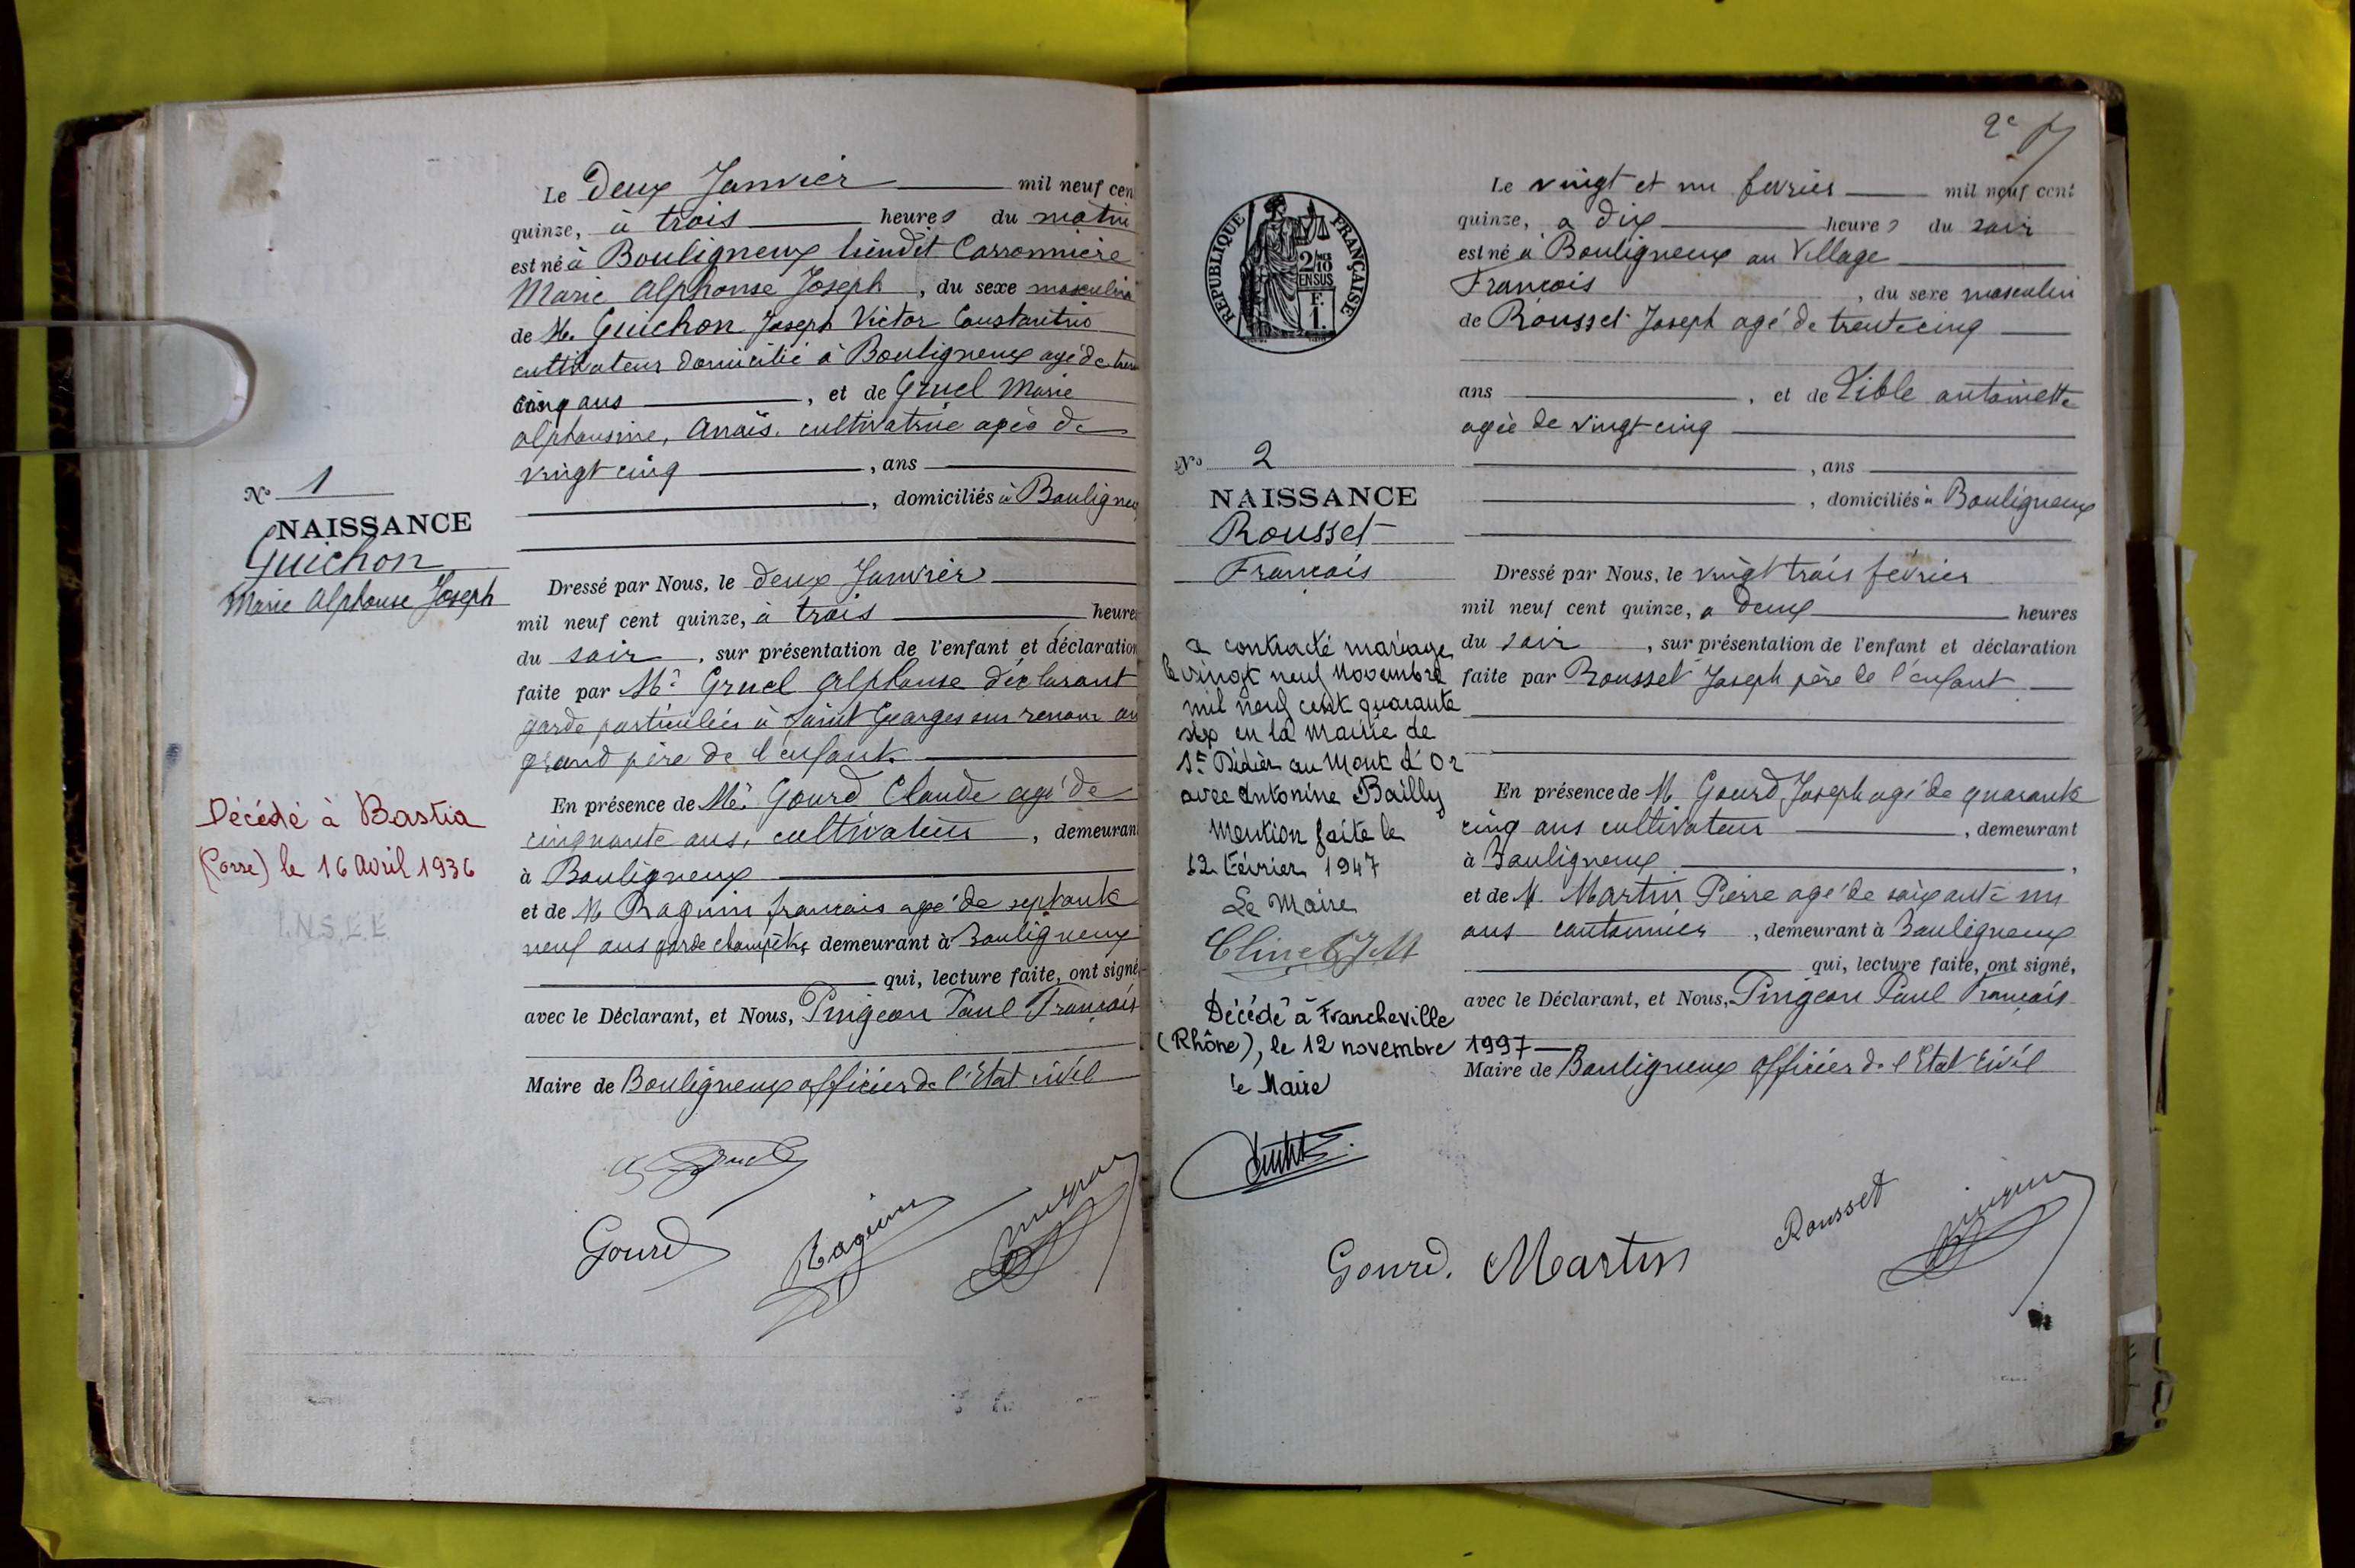 Le Deux Janvier mil neuf cen
quinze, à trois heures du matin
est né à Bouligneux lieudit Carronnière
Marie Alphonse Joseph, du sexe masculin
de M. Guichon Joseph Victor Constantin
cultivateur domicilié à Bouligneux agé de
cinq ans, et de Gruel Marie
alphonsine, Anaïs. cultivatrice agée de
vingt cinq, ans
, domiciliés à Bouligneux
No 1
NAISSANCE
Guichon
Marie Alphonse Joseph
Dressé par Nous, le deux Janvier
mil neuf cent quinze, à trois heures
du soir, sur présentation de l'enfant et déclaration
faite par Mr Gruel Alphonse déclarant
garde particulier à Saint Georges sur renom
grand père de l'enfant.
En présence de Mr. Gourd Claude agé de
cinquante ans, cultivateur, demeurant
à Bouligneux
et de M Raguin francais agé de septante
neuf ans garde champêtre demeurant à Bouligneux
qui, lecture faite, ont signé,
avec le Déclarant, et Nous, Pingeon Paul François
Maire de Bouligneux officier de l'Etat civil
Décédé à Bastia
(Corse) le 16 Avril 1936
I.N.S.E.E.
Gruel
Gourd
Raguin
Pingeon
2e
RÉPUBLIQUE FRANÇAISE
2/10
EN SUS
F.
1.
Le vingt et un fevrier mil neuf cent
quinze, a dix heures du soir
est né à Bouligneux au Village
Francois, du sexe masculin
de Rousset Joseph agé de trente cinq
ans, et de Lible antoinette
agée de vingt-cinq
, ans
, domiciliés à Bouligneux
No 2
NAISSANCE
Rousset
François
Dressé par Nous, le vingt trois février
mil neuf cent quinze, a deux heures
du soir, sur présentation de l'enfant et déclaration
faite par Rousset Joseph père de l'enfant
En présence de M. Gourd Joseph agé de quarante
cinq ans cultivateur, demeurant
à Bouligneux,
et de M. Martin Pierre agé de soixante un
ans cantonnier, demeurant à Bouligneux
qui, lecture faite, ont signé,
avec le Déclarant, et Nous, Pingeon Paul François
Maire de Bouligneux officier de l'Etat Civil
a contracté mariage
le vingt neuf Novembre
mil neuf cent quarante
six en la Mairie de
St Didier au Mont d'Or
avec Antonine Bailly
Mention faite le
12 Février 1947
Le Maire
Décédé à Francheville
(Rhône), le 12 novembre 1997
le Maire
Gourd.
Martin
Rousset
Pingeon